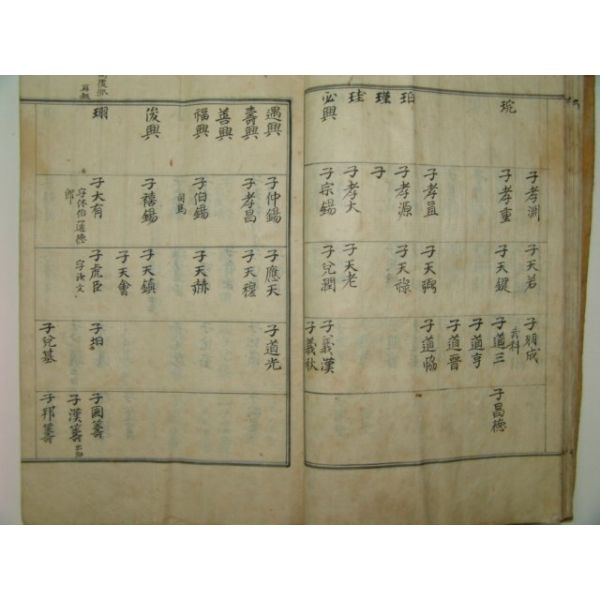 琬
珀
瑾
珪
必興
子孝淵
子孝重
子孝昷
子孝源
子
子孝大
子宗錫
子天若
子天鍵
子天弼
子天祿
子天老
子兌潤
子顯成
武科
子道三
子道亨
子道晋
子道協
子義漢
子義秋
子昌德
遇興
壽興
善興
福興
俊興
珝
子仲錫
子孝昌
子伯錫
司馬
子禧錫
子大有
字休伯 通德
郎
子應天
子天穆
子天赫
子天鎮
子天會
子虎臣
字汝文
子道光
子垍
子兌基
子國籌
子漢籌
子邦籌